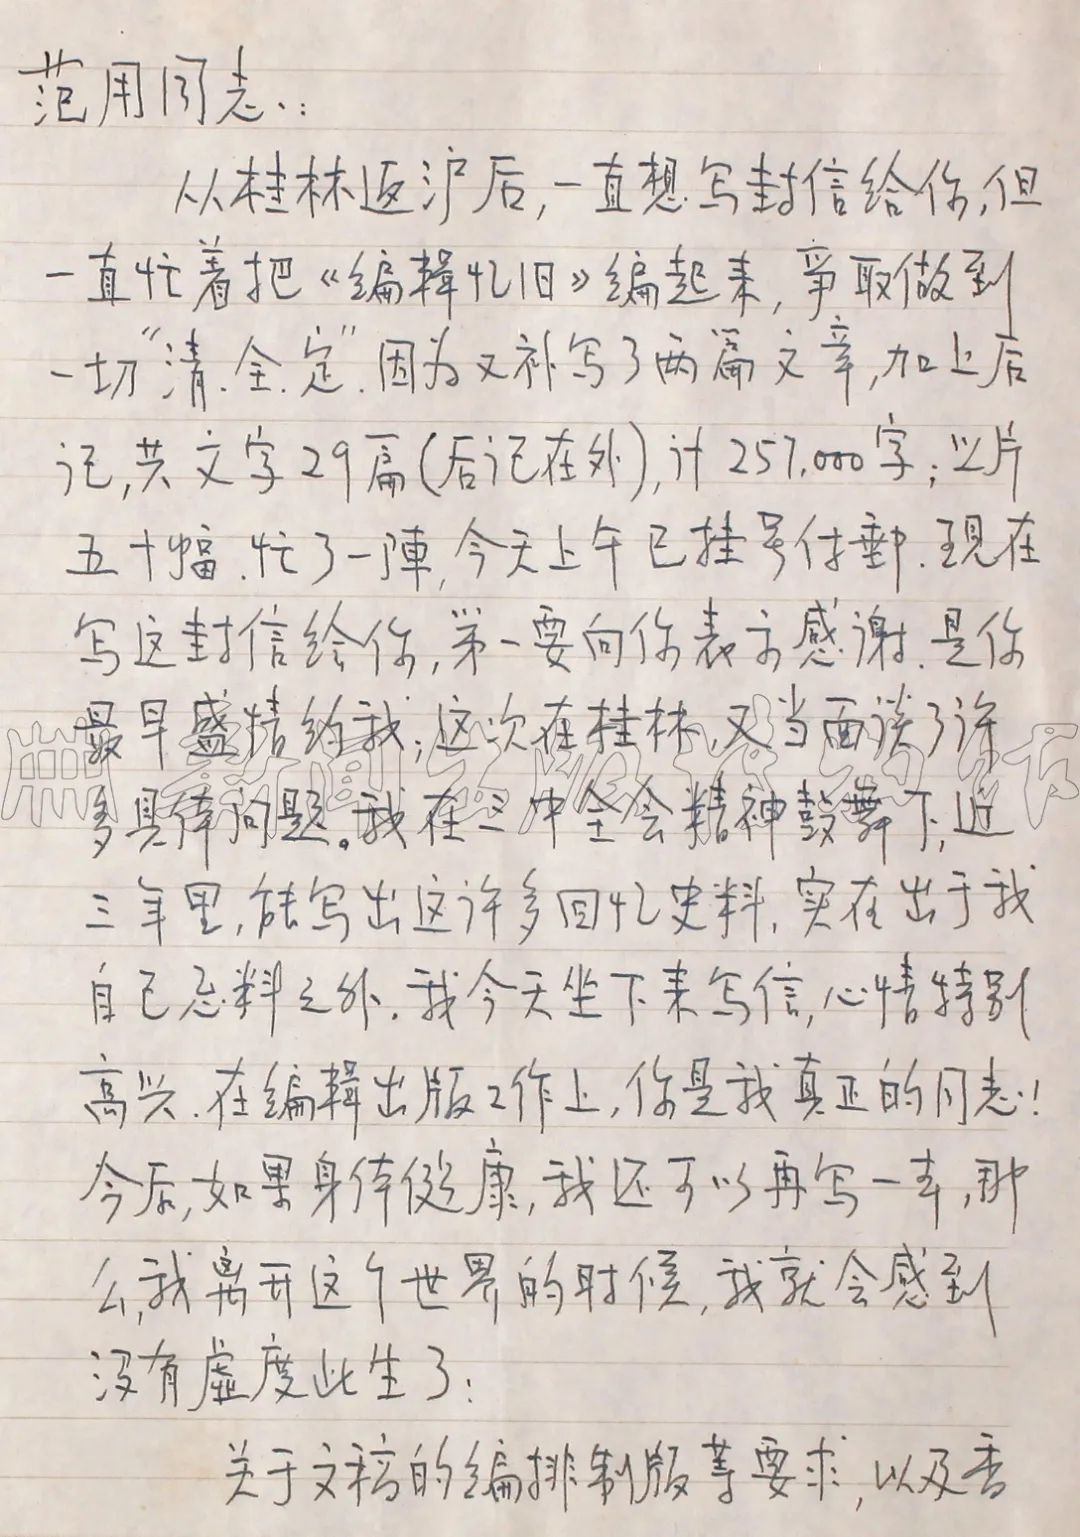 范用同志:
从桂林返沪后,一直想写封信给你,但
一直忙着把《编輯忆旧》编起来,争取做到
一切“清.全.定”.因为又补写了两篇文章,加上后
记,共文字29篇(后记在外),计257,000字;以片
五十幅.忙了一陣,今天上午已挂号付郵.现在
写这封信给你,第一要向你表示感谢.是你
最早盛情约我;这次在桂林,又当面谈了许
多具体问题。我在三中全会精神鼓舞下,近
三年里,能写出这许多回忆史料,实在出于我
自己意料之外.我今天坐下来写信,心情特别
高兴.在编輯出版工作上,你是我真正的同志!
今后,如果身体健康,我还可以再写一本,那
么,我离开这个世界的时候,我就会感到
没有虚度此生了;
关于文稿的编排制版等要求,以及香